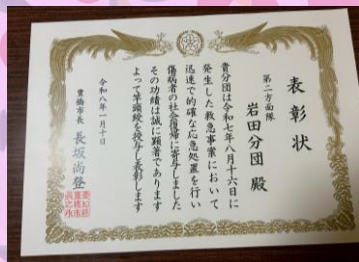 表彰状
第二方面隊
岩田分団 殿
貴分団は令和七年八月十六日に
発生した救急事案において
迅速で的確な応急処置を行い
傷病者の社会復帰に寄与しました
その功績は誠に顕著であります
よって竿頭綬を授与し表彰します
令和八年一月十日
豊橋市長 長坂尚登